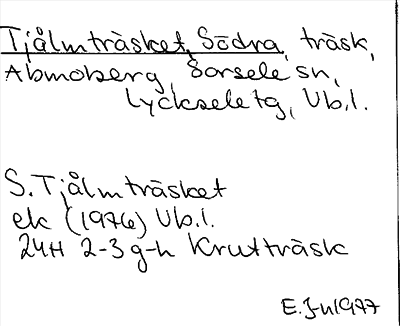 Tjålmträsket, Södra, träsk,
Abmoberg, Sorsele sn,
Lycksele tg, Vb.l.
S. Tjålmträsket
ek (1976) Vb.l.
24H 2-3 g-h Krutträsk
E.J-n 1977